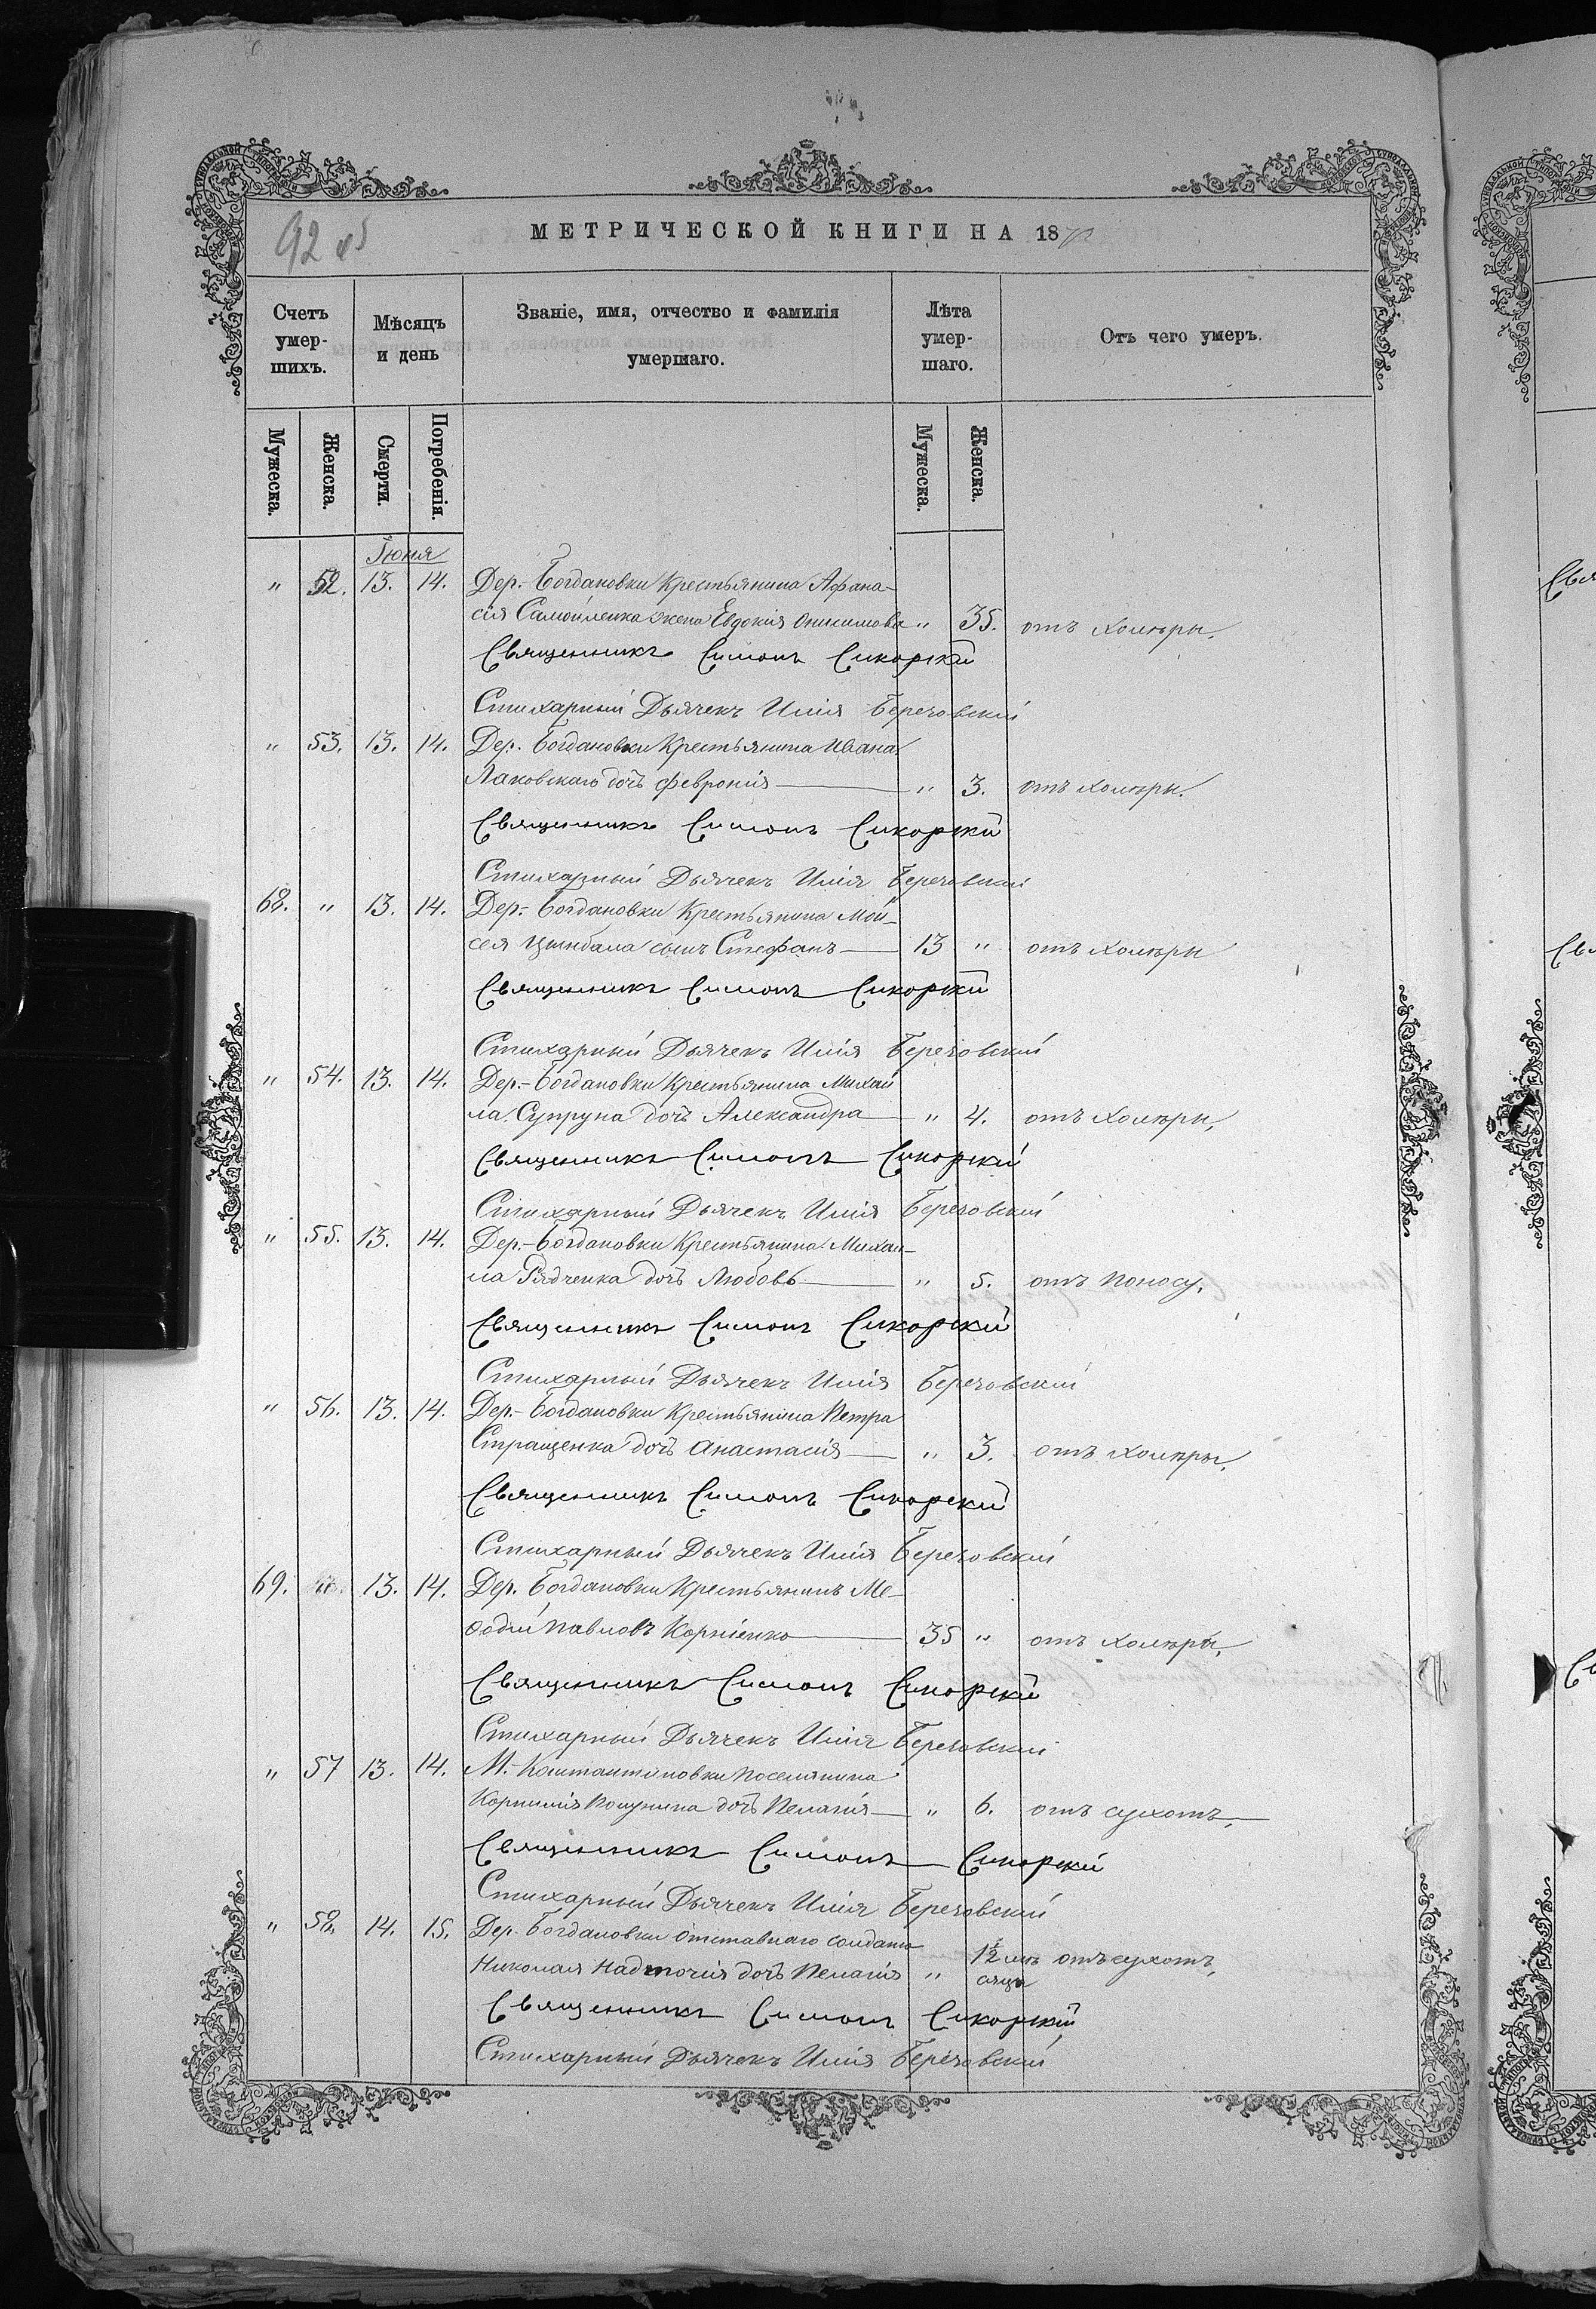 92
МЕТРИЧЕСКОЙ КНИГИ НА 1872
Счетъ умер-шихъ.
Мѣсяцъ и день
Званіе, имя, отчество и фамилія умершаго.
Лѣта умер-шаго.
Отъ чего умеръ.
Мужеска.
Женска.
Смерти.
Погребенія.
Мужеска.
Женска.
Іюня
" 52. 13. 14. Дер.- Богдановки Крестьянина Афана-
сія Самойленка жена Евдокія Онисимова " 35. отъ холеры.
Священникъ Симонъ Сикорскій
Стихарный Дьячекъ Илія Березовскій
" 53. 13. 14. Дер. Богдановки Крестьянина Ивана
Лаковскаго дочь Февронія " 3. отъ холеры.
Священникъ Симонъ Сикорскій
Стихарный Дьячекъ Илія Березовскій
68. " 13. 14. Дер.- Богдановки Крестьянина Мои-
сея Цымбала сынъ Стефанъ 13 " отъ холеры
Священникъ Симонъ Сикорскій
Стихарный Дьячекъ Илія Березовскій
" 54. 13. 14. Дер.- Богдановки Крестьянина Михаи
ла Супруна дочь Александра " 4. отъ холеры.
Священникъ Симонъ Сикорскій
Стихарный Дьячекъ Илія Березовскій
" 55. 13. 14. Дер.- Богдановки Крестьянина Михаи-
ла Рядченка дочь Любовь " 5. отъ поносу.
Священникъ Симонъ Сикорскій
Стихарный Дьячекъ Илія Березовскій
" 56. 13. 14. Дер.- Богдановки Крестьянина Петра
Стращенка дочь Анастасія " 3. отъ холеры.
Священникъ Симонъ Сикорскій
Стихарный Дьячекъ Илія Березовскій
69. 13. 14. Дер. Богдановки Крестьянинъ Ме-
ѳодій Павловъ Корніенко 35 " отъ холеры.
Священникъ Симонъ Сикорскій
Стихарный Дьячекъ Илія Березовскій
" 57 13. 14. М.- Константиновки поселянина
Корнилія дочь Пелагія " 6. отъ сухотъ.
Священникъ Симонъ Сикорскій
Стихарный Дьячекъ Илія Березовскій
" 58. 14. 15. Дер. Богдановки отставнаго солдата
Николая Надточія дочь Пелагія " 1½ мѣсяца отъ сухотъ.
Священникъ Симонъ Сикорскій
Стихарный Дьячекъ Илія Березовскій